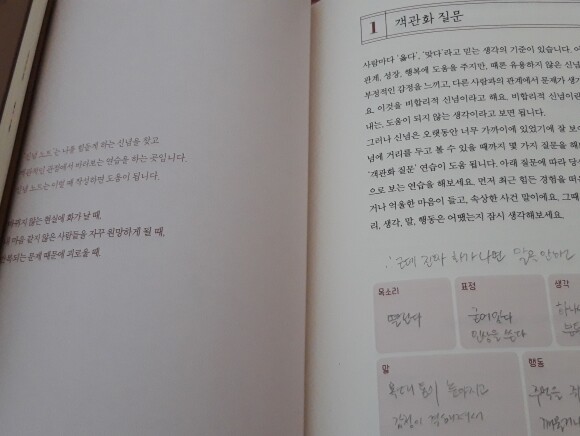 신념 노트'는 나를 힘들게 하는 신념을 찾고
객관적인 관점에서 바라보는 연습을 하는 곳입니다.
신념 노트는 이럴 때 작성하면 도움이 됩니다.
않는 현실에 화가 날 때,
마음 같지 않은 사람들을 자꾸 원망하게 될 때,
반복되는 문제 때문에 괴로울 때,
1 객관화 질문
사람마다 '옳다', '맞다'라고 믿는 생각의 기준이 있습니다.
관계, 성장, 행복에 도움을 주지만, 때론 유용하지 않은 신념
부정적인 감정을 느끼고, 다른 사람과의 관계에서 문제가 생기
요. 이것을 비합리적 신념이라고 해요. 비합리적 신념이란
내는, 도움이 되지 않는 생각이라고 보면 됩니다.
그러나 신념은 오랫동안 너무 가까이에 있었기에 잘 보
념에 거리를 두고 볼 수 있을 때까지 몇 가지 질문을 해
'객관화 질문' 연습이 도움 됩니다. 아래 질문에 따라
으로 보는 연습을 해보세요. 먼저 최근 힘든 경험을 떠올
거나 억울한 마음이 들고, 속상한 사건 말이에요. 그때
리, 생각, 말, 행동은 어땠는지 잠시 생각해보세요.
근데 진짜 화가 나면 말은 안하고
목소리
표정
생각
떨린다
굳어있다
인상을 쓴다
말
행동
높아지고
감정이 격해져서
주먹은